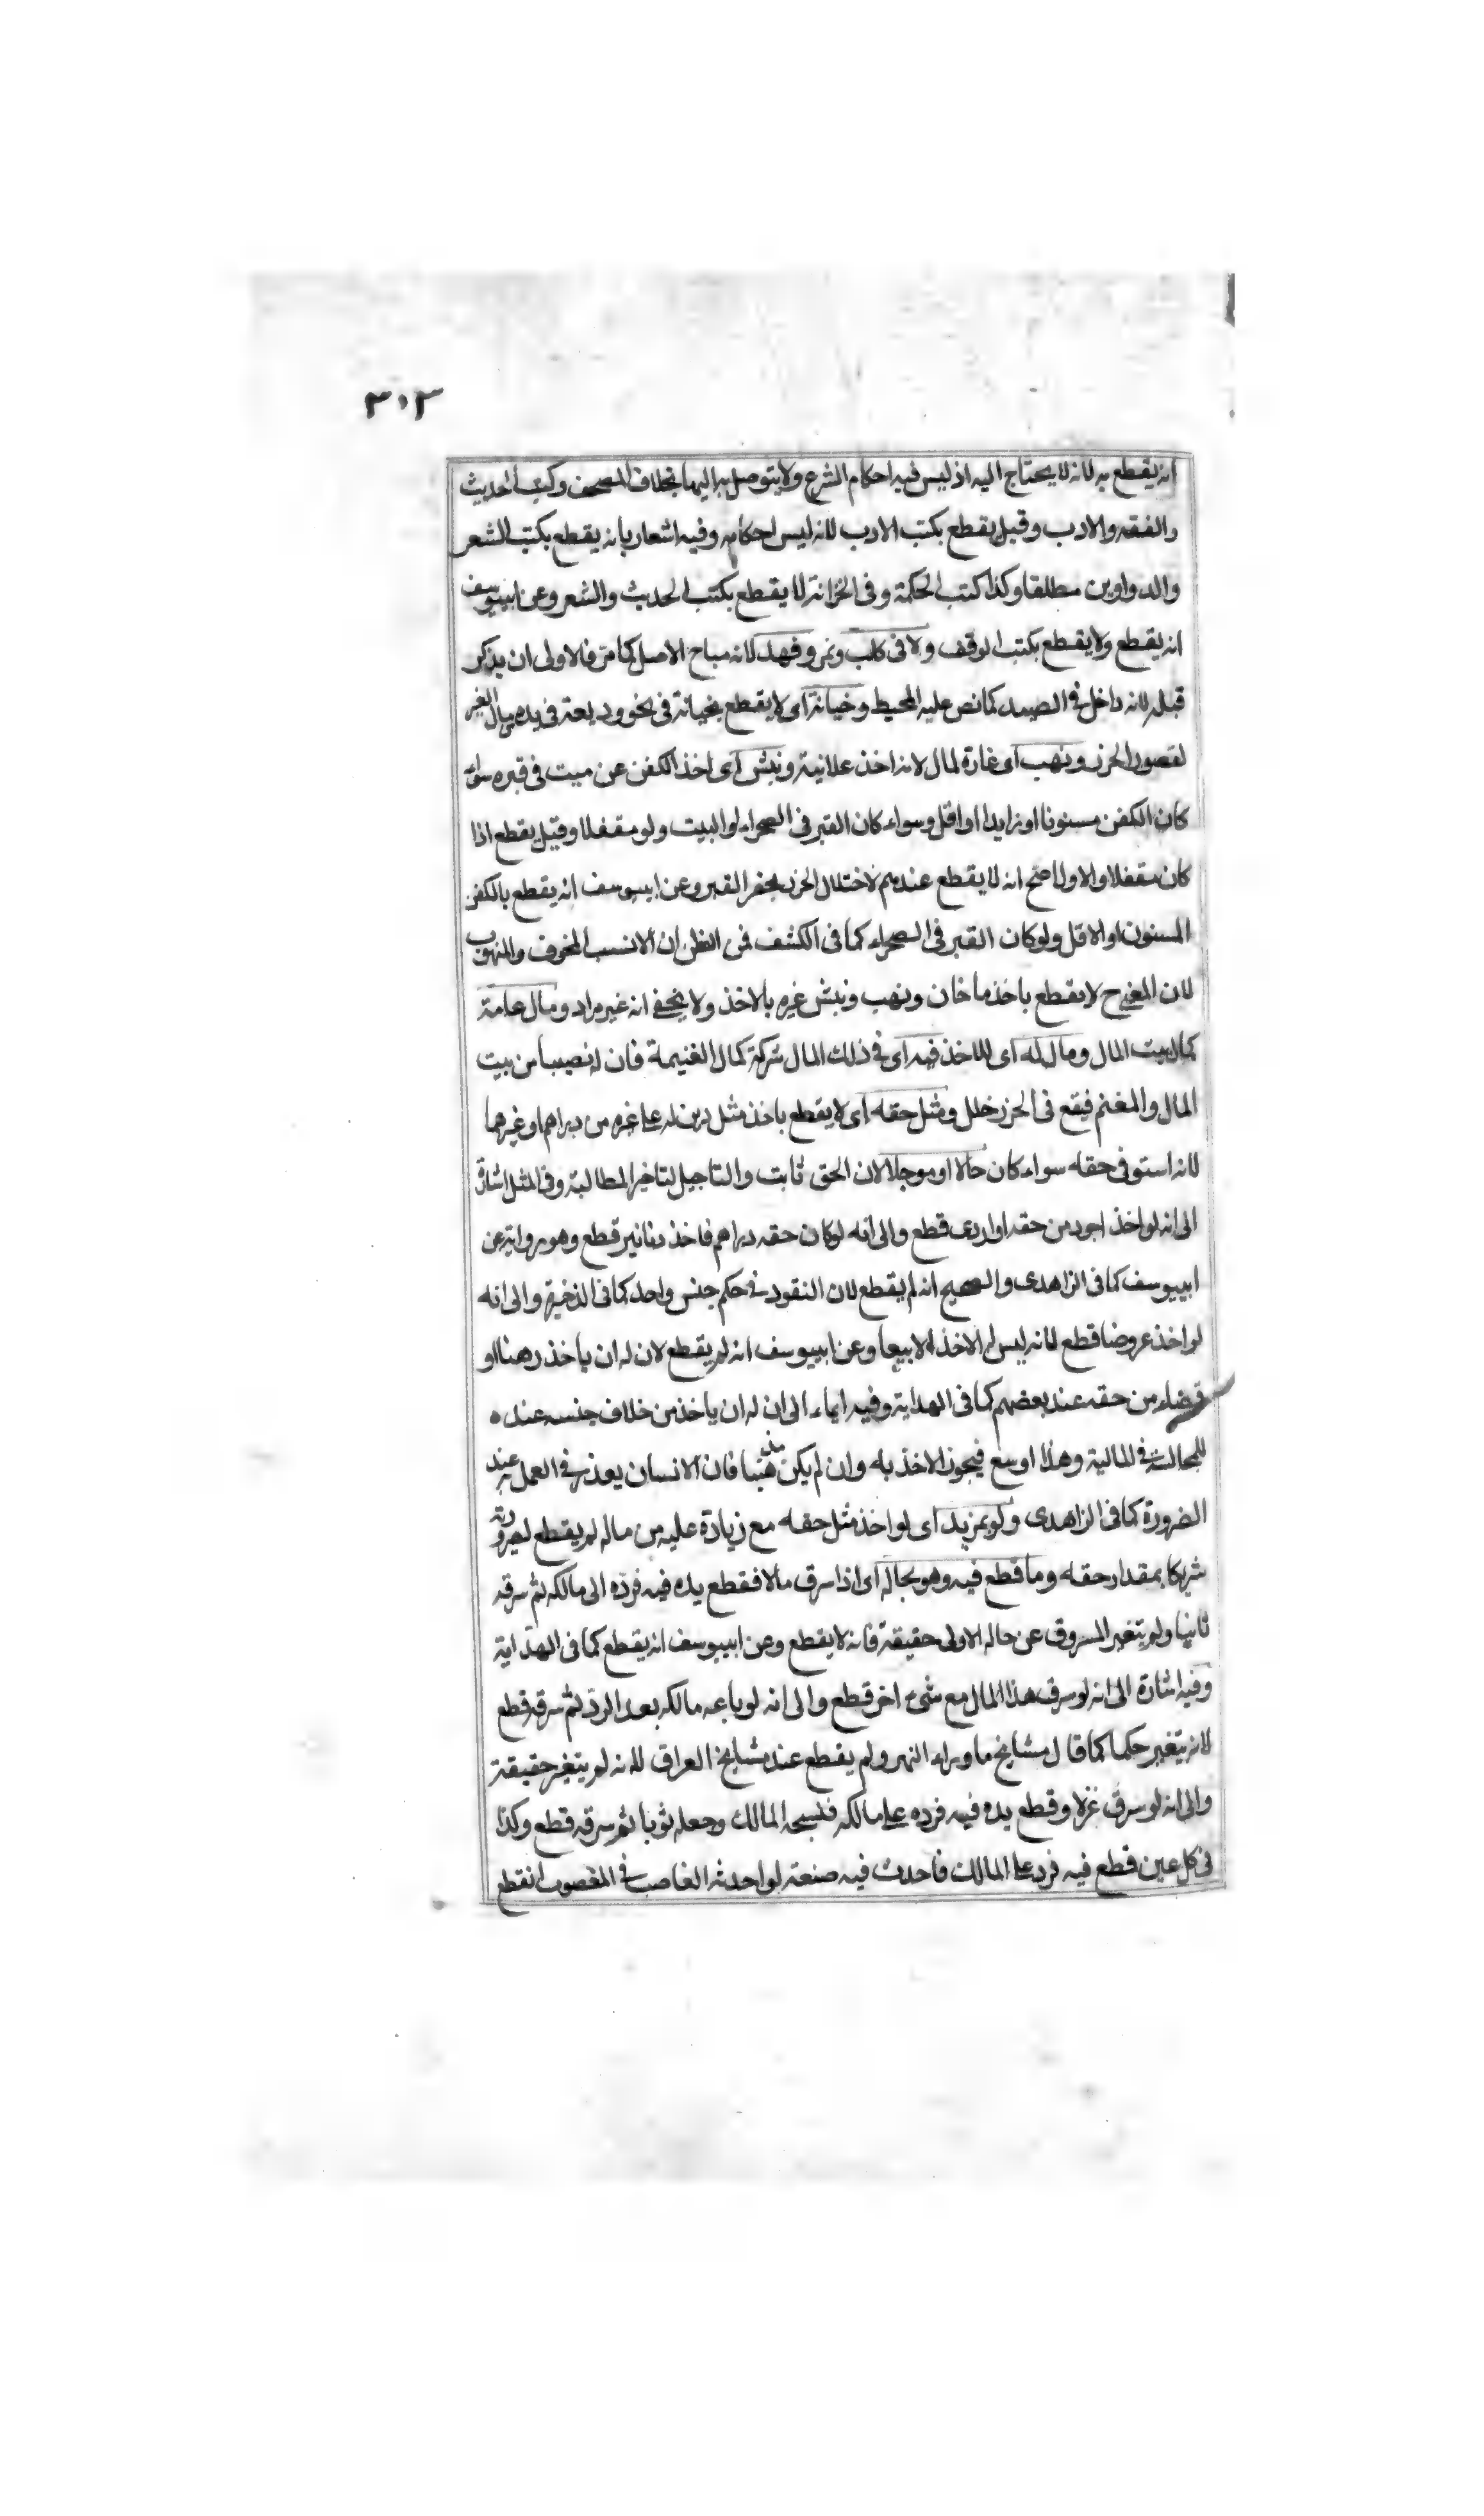 ٣٠٣
انه يقطع به لانه لا يحتاج اليه اذ ليس فيه احكام الشرع ولا يتوصل به اليها بخلاف المصحف وكتب الحديث
والفقه والادب وقيل يقطع بكتب الادب لانه ليس احكام وفيه اشعار بانه يقطع بكتب الشعر
والدواوين مطلقا وكذا كتب الحكمة وفى الخزانة لا يقطع بكتب الحديث والشعر وعن ابييوسف
انه يقطع ولا يقطع بكتب الوقف ولا فى كلب ونمر وفهد لانه مباح الاصل كما مر فالاولى ان يذكر
قبله لانه داخل فى الصيد كما نص عليه المحيط وخيانة اى لا يقطع بخيانة فى نحو وديعة فى يده من مال الغير
لقصور الحرز ونهب اى غارة لمال لانه اخذ علانية ونبش اى اخذ الكفن عن ميت فى قبره سواء
كان الكفن مسنونا او زايدا او اقل وسواء كان القبر فى الصحراء او البيت ولو مقفلا وقيل يقطع اذا
كان مقفلا والاول اصح انه لا يقطع عندهم لاختلال الحرز بحفر القبر وعن ابييوسف انه يقطع بالكفن
المسنون او الاقل ولو كان القبر فى الصحراء كما فى الكشف فمن الظن ان الانسب المخوف والمنهوب
لان المفتح لا يقطع باخذ ما خان ونهب ونبش غيره بالاخذ ولا يخفى انه غير مراد ومال عامة
كمال بيت المال ومال له اى للاخذ فيه اى فى ذلك المال شركة كمال الغنيمة فان له نصيبا من بيت
المال والمغنم فيقع فى الحرز خلل ومثل حقه اى لا يقطع باخذ مثل دين له على غيره من دراهم او غيرهما
لانه استوفى حقه سواء كان حالا او موجلا لان الحق ثابت والتاجيل لتاخير المطالبة وفى المثل اشارة
الى انه لو اخذ اجود من حقه او اردى قطع والى انه لو كان حقه دراهم فاخذ دنانير قطع وهو رواية عن
ابييوسف كما فى الزاهدى والصحيح انه لم يقطع لان النقود فى حكم جنس واحد كما فى الذخيرة والى انه
لو اخذ عروضا قطع لانه ليس له الاخذ الا بيعا وعن ابييوسف انه لم يقطع لان له ان ياخذ رهنا او
قضاء من حقه عند بعضهم كما فى الهداية وفيه ايماء الى ان له ان ياخذ من خلاف جنسه عنده
للمجالسة فى المالية وهذا اوسع فيجوز الاخذ به وان لم يكن مذهبنا فان الانسان يعذر فى العمل به عند
الضرورة كما فى الزاهدى ولو بمزيد اى لو اخذ مثل حقه مع زيادة عليه من ماله لم يقطع لصيرورته
شريكا بمقدار حقه وما قطع فيه وهو بحاله اى اذا سرق مالا فقطع يده فيه فرده الى مالكه ثم سرقه
ثانيا ولم يتغير المسروق عن حاله الاولى حقيقة فانه لا يقطع وعن ابييوسف انه يقطع كما فى الهداية
وفيه اشارة الى انه لو سرق هذا المال مع شىء اخر قطع والى انه لو باعه مالكه بعد الرد ثم سرقه قطع
لانه يتغير حكما كما قال مشايخ ما وراء النهر ولم يقطع عند مشايخ العراق لانه لم يتغير حقيقة
والى انه لو سرق غزلا وقطع يده فيه فرده على مالكه فنسجه المالك وجعله ثوبا ثم سرقه قطع وكذا
فى كل عين قطع فيه فرد على المالك فاحدث فيه صنعة لو احدثه الغاصب فى المغصوب انقطع